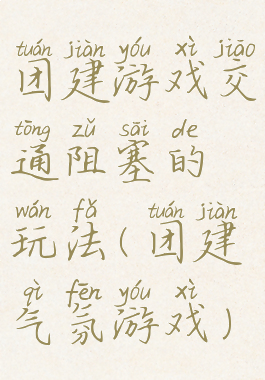 tuán jiàn yóu xì jiāo
团建游戏交
tōng zǔ sāi de
通阻塞的
wán fǎ tuán jiàn
玩法(团建
qì fēn yóu xì
气氛游戏)